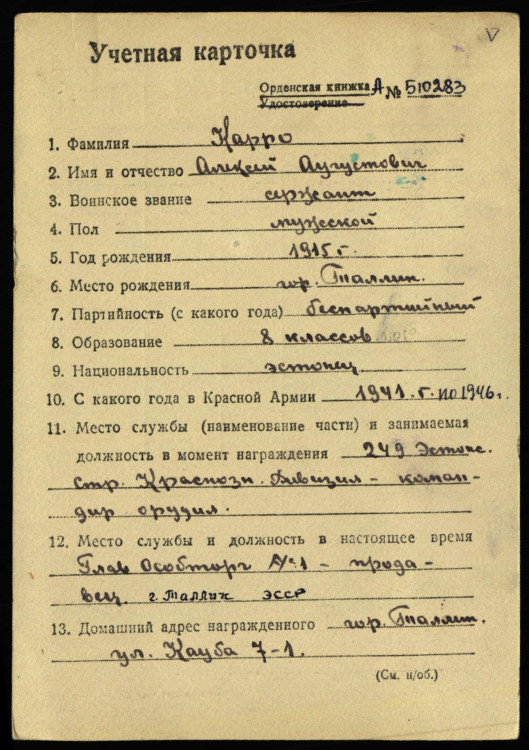 Учетная карточка
Орденская книжка А № 510283
Удостоверение
1. Фамилия Карро
2. Имя и отчество Алексей Аугустович
3. Воинское звание сержант
4. Пол мужской
5. Год рождения 1915 г.
6. Место рождения гор. Таллин.
7. Партийность (с какого года) беспартийный
8. Образование 8 классов
9. Национальность эстонец
10. С какого года в Красной Армии 1941. г. по 1946 г.
11. Место службы (наименование части) и занимаемая
должность в момент награждения 249 Эстонс.
стр. Краснозн. Дивизия - коман-
дир орудия.
12. Место службы и должность в настоящее время
Глав Особторг №1 - прода-
вец. г. Таллин ЭССР
13. Домашний адрес награжденного гор. Таллин.
ул. Кауба 7-1.
(См. н/об.)